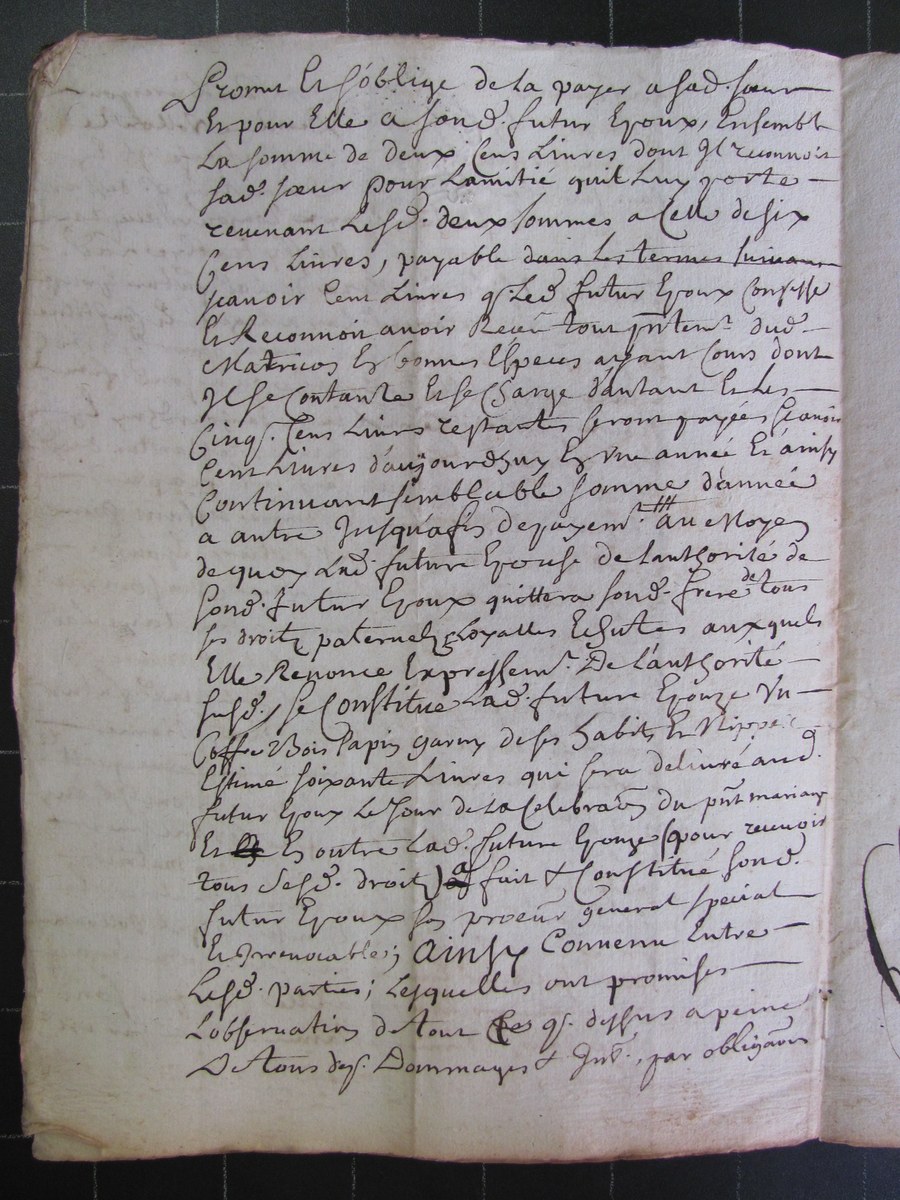 Promet Et s'oblige de la payer a sad. sœur
Et pour Elle a sond. futur Epoux, Ensemble
La somme de deux Cens Livres dont Il reconnoit
sad. sœur pour Lamitié quil Luy porte
revenant Lesd. deux sommes a Celle de six
Cens Livres, payable dans Les termes suivans
scavoir Cent Livres q. Led. futur Epoux Confesse
Et Reconnoit avoir Receu tout pntem.t dud.
Matricos En bonnes Especes ayant Cours dont
Il se Contante Et se Charge d'autant Et Les
Cinq. Cens Livres restantes seront payées scavoir
Cent Livres d'aujourdhuy En une année Et ainsy
Continuant semblable somme d'année
a autre Jusqu'a fin de payem.t Au Moyen
de quoy Lad. future Epouse de Lauthorité de
sond. futur Epoux quittera sond. frere de tous
ses droits paternels Et Suites auxquels
Elle Renonce Expressem.t De L'authorité
susd. se Constitue Lad. future Epouze Un
Coffre Bois Sapin garny de ses habits Et Nippes
Estimé soixante Livres qui sera delivré aud.
futur Epoux Le Jour de La Celebraôn du pnt mariage
Et En outre Lad. future Epouze (pour recevoir
tous Sesd. droits) a fait & Constitué sond.
futur Epoux son procur general special
Et Irrevocable; Ainsy Convenu Entre
Lesd. parties; Lesquelles ont promises
Lobservation de tout Ce q. dessus a peine
De tous desp. Dommages & Int. par obligaôn